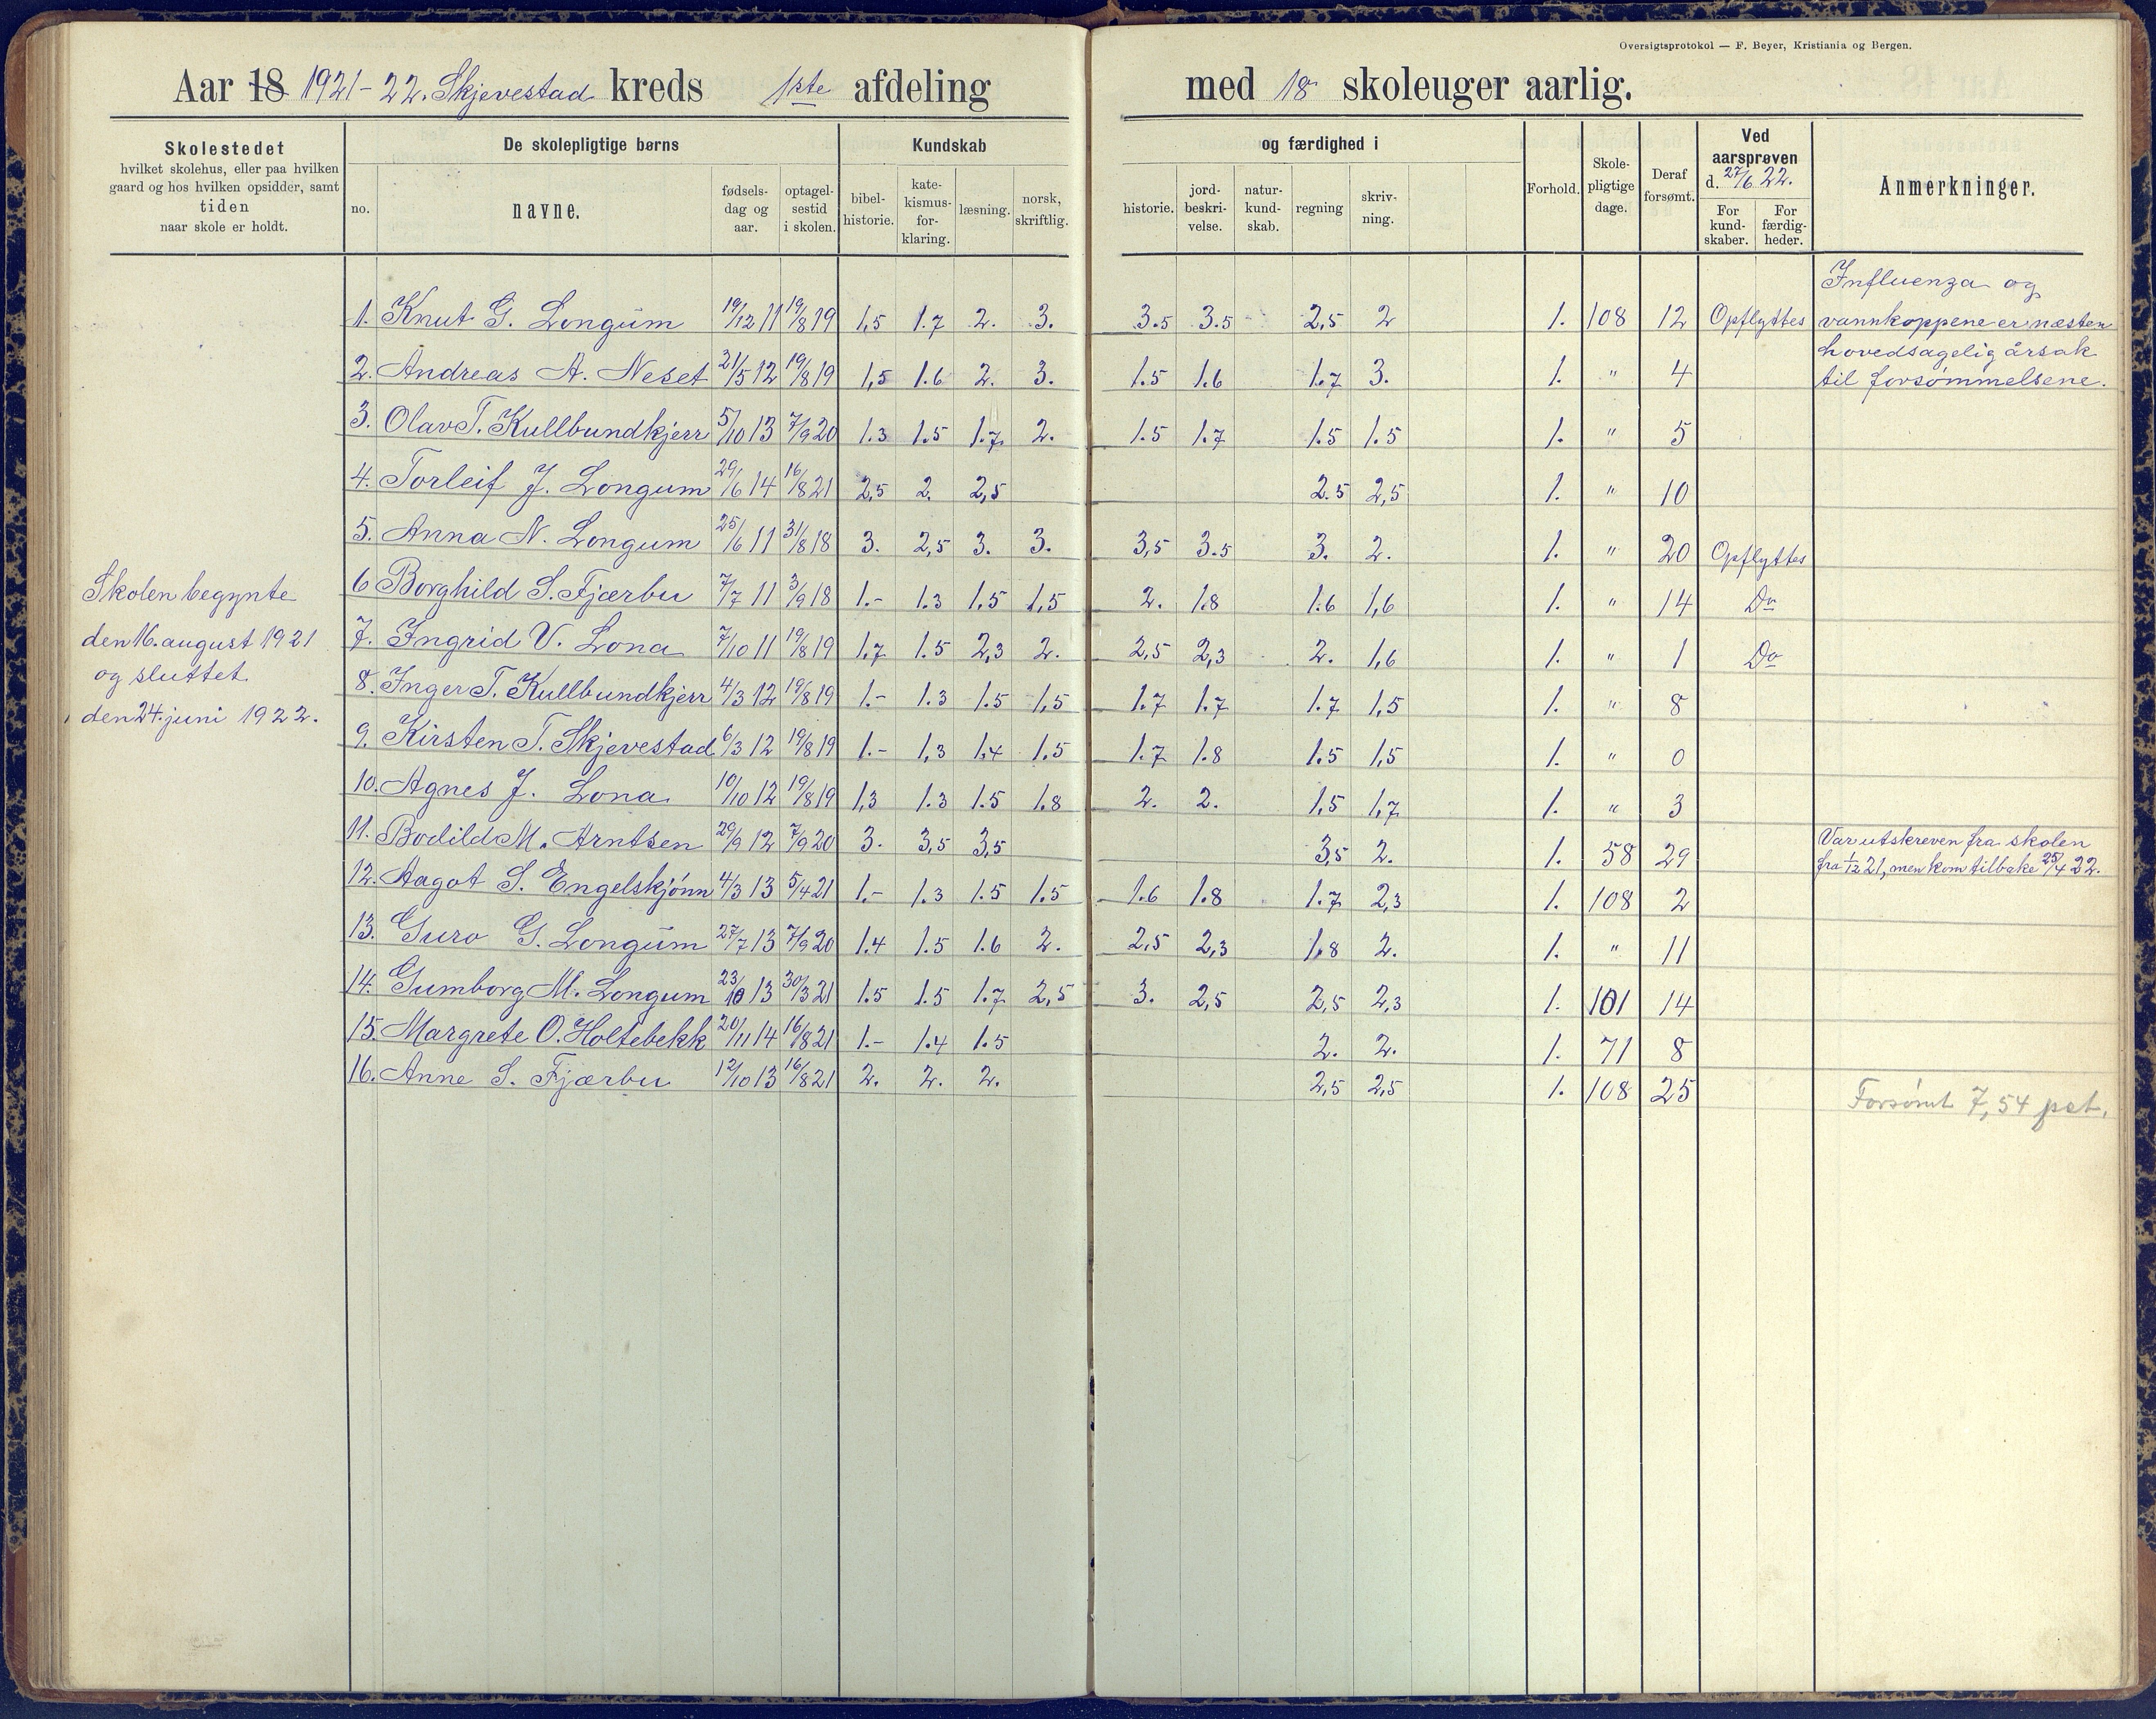 Oversigtsprotokol — F. Beyer, Kristiania og Bergen.
Aar 18 1921-22. Skjevestad kreds 1ste afdeling med 18 skoleuger aarlig.
Skolestedet
hvilket skolehus, eller paa hvilken
gaard og hos hvilken opsidder, samt
tiden
naar skole er holdt.
De skolepligtige børns
no.
navne.
fødsels-
dag og
aar.
optagel-
sestid
i skolen.
Kundskab
bibel-
historie.
kate-
kismus-
for-
klaring.
læsning.
norsk,
skriftlig.
og færdighed i
historie.
jord-
beskri-
velse.
natur-
kund-
skab.
regning
skriv-
ning.
Forhold.
Skole-
pligtige
dage.
Deraf
forsømt.
Ved
aarsprøven
d. 27/6 22.
For
kund-
skaber.
For
færdig-
heder.
Anmerkninger.
Skolen begynte
den 16. august 1921
og sluttet
den 24. juni 1922.
1. Knut G. Longum 19/12 11 19/8 19 1,5 1.7 2. 3. 3.5 3.5 2,5 2 1. 108 12 Opflyttes
2. Andreas A. Neset 21/5 12 19/8 19 1,5 1.6 2. 3. 1.5 1.6 1.7 3. 1. " 4
3. Olav T. Kullbundkjerr 5/10 13 7/9 20 1.3 1.5 1.7 2. 1.5 1.7 1.5 1.5 1. " 5
4. Torleif J. Longum 29/6 14 16/8 21 2,5 2. 2,5 2.5 2,5 1. " 10
5. Anna N. Longum 25/6 11 31/8 18 3. 2,5 3. 3. 3,5 3.5 3. 2. 1. " 20 Opflyttes
6 Borghild S. Fjærbu 7/7 11 3/9 18 1.- 1.3 1.5 1,5 2. 1.8 1.6 1,6 1. " 14 Do
7. Ingrid V. Lona 7/10 11 19/8 19 1,7 1.5 2,3 2. 2,5 2,3 2. 1,6 1. " 1 Do
8. Inger T. Kullbundkjerr 4/3 12 19/8 19 1.- 1.3 1.5 1,5 1.7 1.7 1.7 1,5 1. " 8
9. Kirsten T. Skjevestad 6/3 12 19/8 19 1.- 1,3 1.4 1.5 1.7 1.8 1.5 1,5 1. " 0
10. Agnes J. Lona 10/10 12 19/8 19 1,3 1.3 1.5 1.8 2. 2. 1,5 1,7 1. " 3
11. Bodild M. Arntsen 29/9 12 7/9 20 3. 3,5 3,5 3,5 2. 1. 58 29
12. Aagot S. Engelskjønn 4/3 13 5/4 21 1.- 1.3 1.5 1.5 1.6 1.8 1.7 2,3 1. 108 2
13. Guro G. Longum 27/7 13 7/9 20 1.4 1.5 1.6 2. 2,5 2,3 1.8 2. 1. " 11
14. Gumborg M. Longum 23/10 13 30/3 21 1.5 1.5 1.7 2,5 3. 2,5 2,5 2,3 1. 101 14
15. Margrete O. Holtebekk 20/11 14 16/8 21 1.- 1.4 1.5 2. 2. 1. 71 8
16. Anne S. Fjærbu 12/10 13 16/8 21 2. 2. 2. 2,5 2,5 1. 108 25
Influenza og
vannkoppene er næsten
hovedsagelig årsak
til forsømmelsene.
Var utskreven fra skolen
fra 1/12 21, men kom tilbake 25/4 22.
Forsømt 7,54 pct.